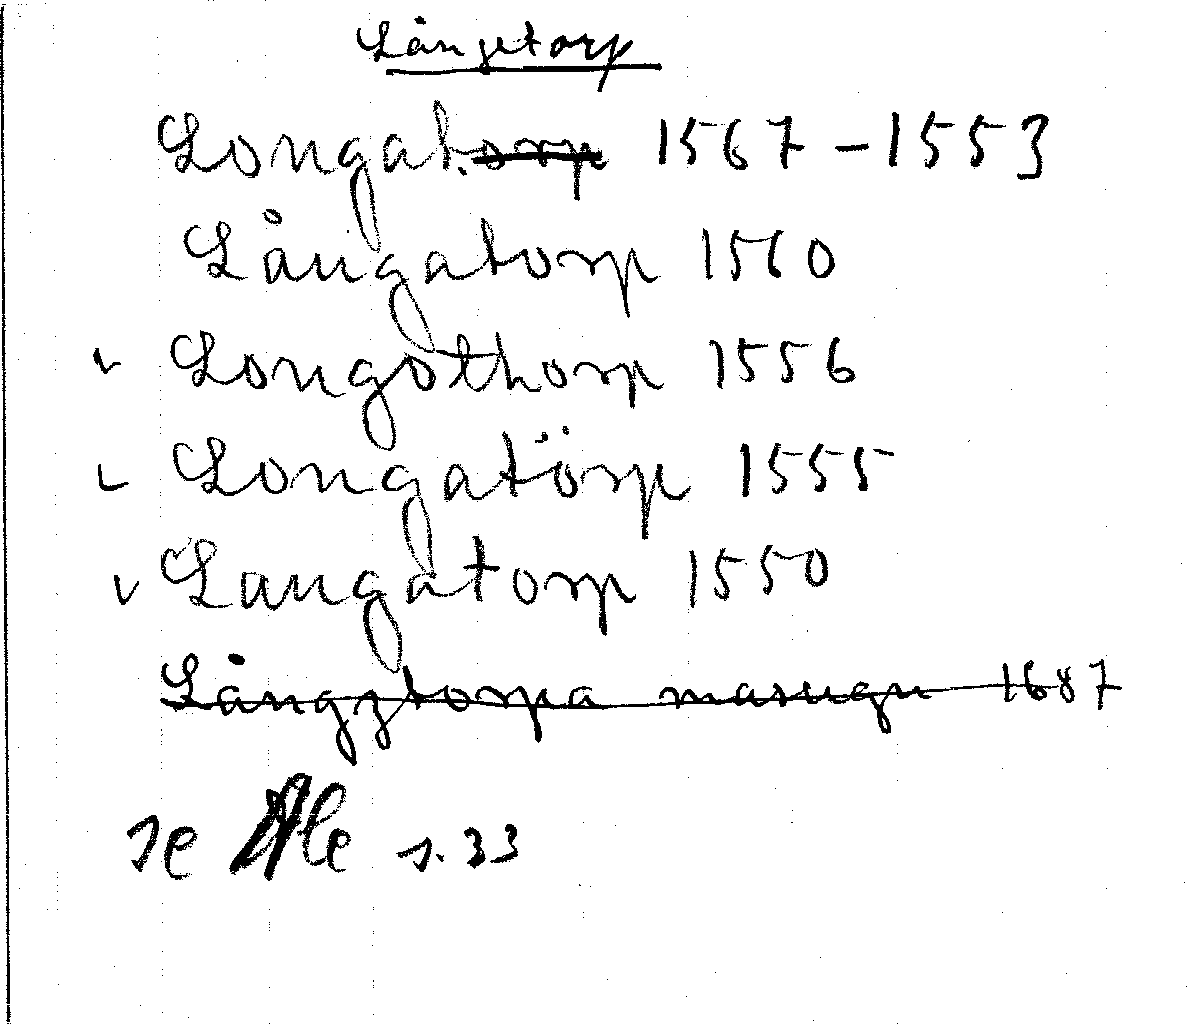 Långetorp
Longat.orp 1567-1553
Långatorp 1560
v Longothorp 1556
v Longatörp 1555
v Langatorp 1550
Långztorpa masugn 1687
se Ale s. 33